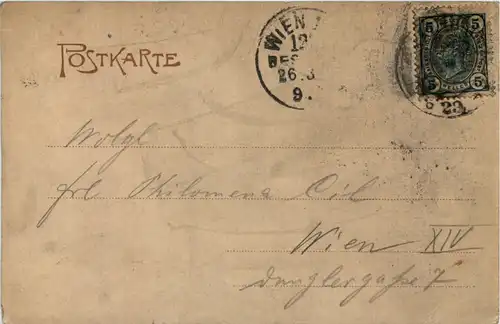 POSTKARTE
WIEN
12
BES
26.3
9.
5 5
5 5
Wolgb
frl Philomena Cil
Wien XIV
Dunglergasse 7